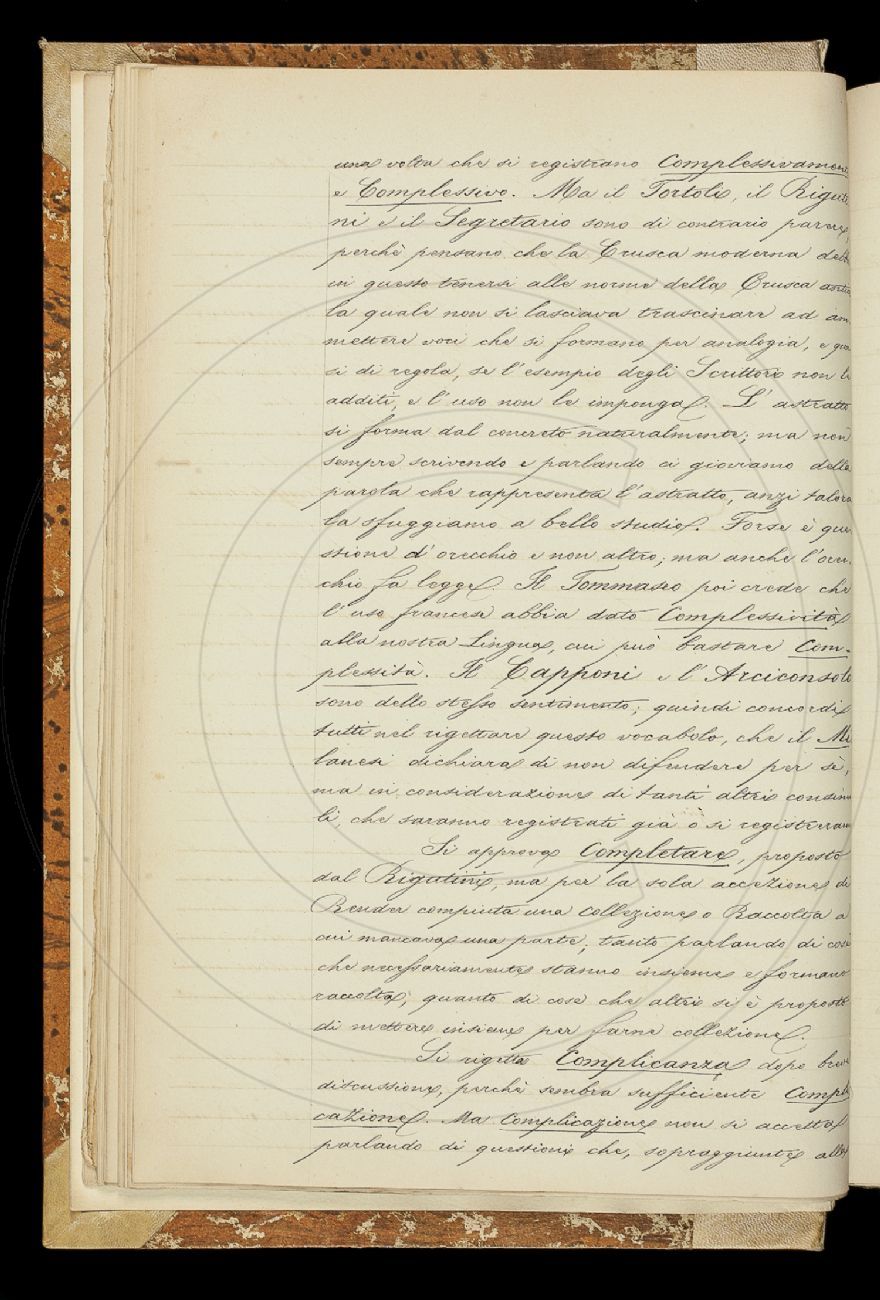 una volta che si registrano Complessivamen
e Complessivo. Ma il Tortoli, il Riguti
ni e il Segretario sono di contrario parere,
perchè pensano che la Crusca moderna debb
in questo tenersi alle norme della Crusca antic
la quale non si lasciava trascinare ad am
mettere voci che si formano per analogia, e qua
si di regola, se l'esempio degli Scrittori non le
additi, e l'uso non le imponga. L'astratto
si forma dal concreto naturalmente; ma non
sempre scrivendo e parlando ci gioviamo della
parola che rappresenta l'astratto, anzi talora
la sfuggiamo a bello studio. Forse è que
stione d'orecchio e non altro; ma anche l'orec
chio fa legge. Il Tommaseo poi crede che
l'uso francese abbia dato Complessività
alla nostra Lingua, cui può bastare Com-
plessità. Il Capponi e l'Arciconsolo
sono dello stesso sentimento; quindi concordi
tutti nel rigettare questo vocabolo, che il Mi
lanesi dichiara di non difendere per sè,
ma in considerazione di tanti altri consimi
li, che saranno registrati già o si registreran
Si approva Completare, proposto
dal Rigutini, ma per la sola accezione di
Render compiuta una collezione o Raccolta a
cui mancava una parte, tanto parlando di cose
che necessariamente stanno insieme e formano
raccolta, quanto di cose che altri si è proposto
di mettere insieme per farne collezione.
Si rigetta Complicanza dopo breve
discussione, perchè sembra sufficiente Compli
cazione. Ma Complicazione non si accetta
parlando di questioni che, sopraggiunte alle